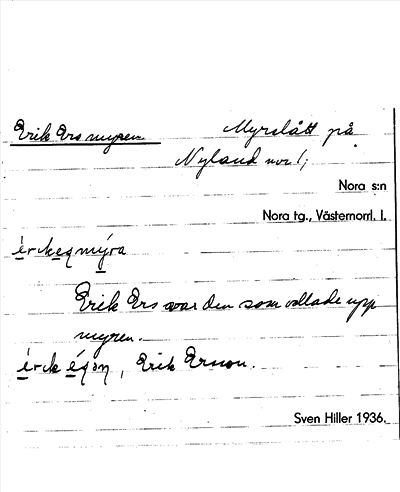 Erik Ers myren. Myrslått på
Nyland nor 1;
Nora s:n
Nora tg., Västernorrl. l.
Erik Ers var den som odlade upp
myren.
Erik Ersson.
Sven Hiller 1936.